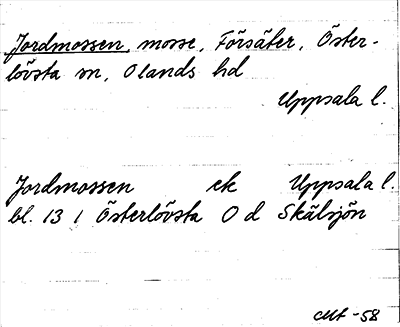 Jordmossen, mosse, Försäter, Öster-
lövsta sn, Olands hd
Uppsala l.
Jordmossen ek Uppsala l.
bl. 13 I Österlövsta O d Skälsjön
-58